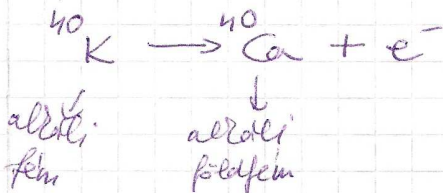 ⁴⁰K → ⁴⁰Ca + e⁻
alkáli alkáli
fém földfém